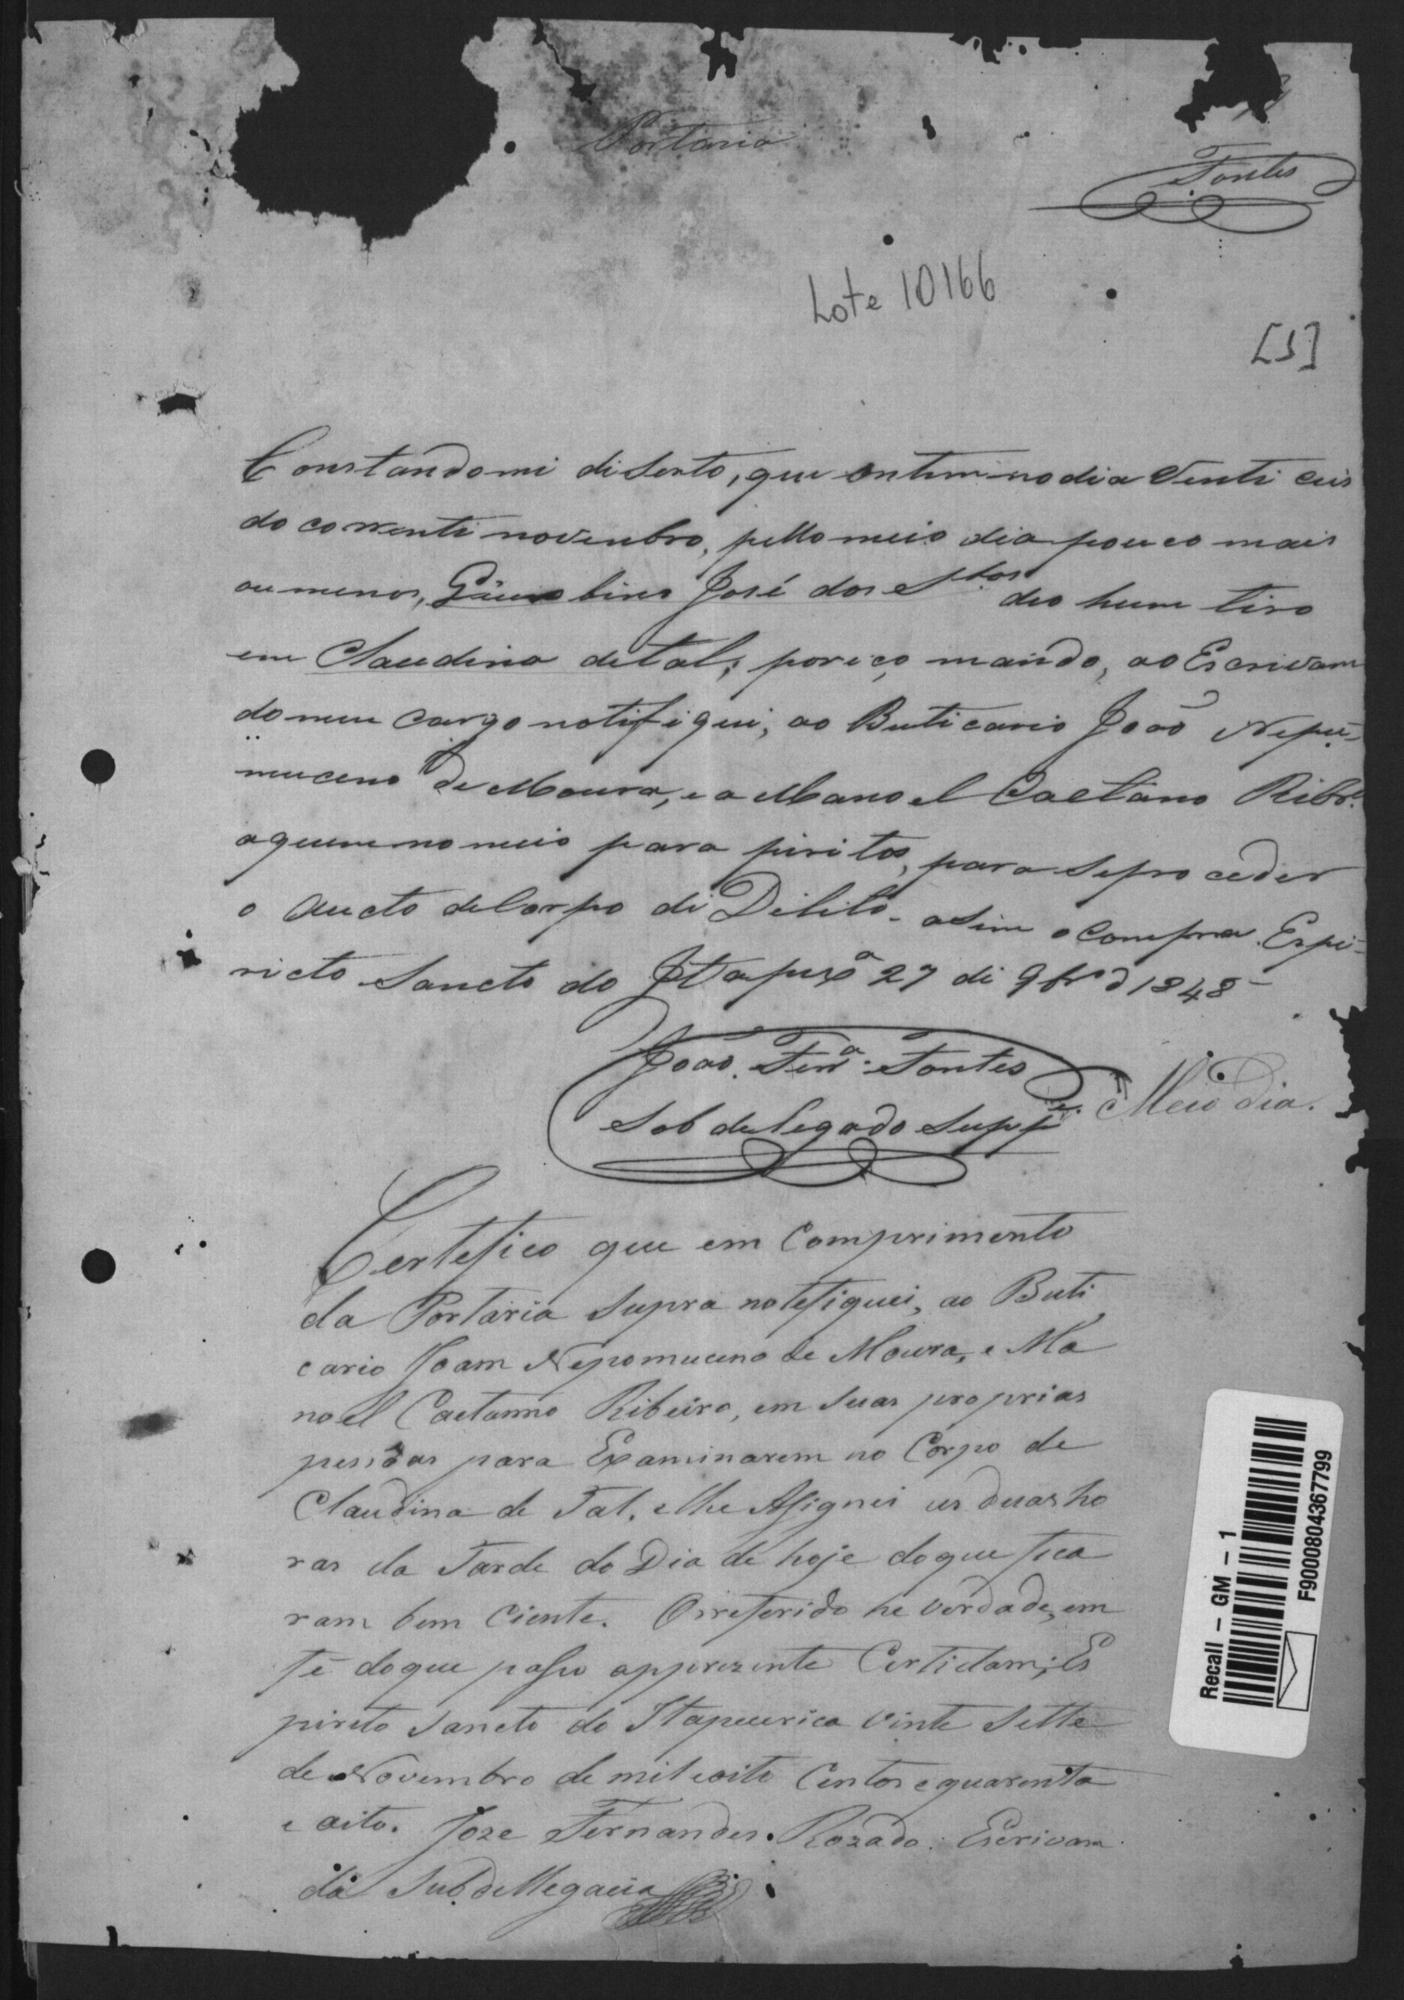 Portaria
Fontes
Lote 10166
[1]
Constandomi di serto, que ontem no dia Venti ceis
do correnti novenbro, pello meio dia pouco mais
ou menos, José dos Stos deo hum tiro
em Claudina detal; poriço mando, ao Escrivam
do meu cargo notifiqui, ao Buticario João Nepu-
muceno de Moura, e a Manoel Caetano Ribr.º
aquem nomeio para piritos, para se proceder
o Aucto de Corpo di Dilito. asim o Compra. Espi-
ricto Sancto do Itapexª 27 di 9brº d 1848
João Ferrª Fontes
Sobdelegado Suppe
Meio Dia.
Certefico que em Comprimento
da Portaria Supra notefiquei, ao Buti
cario Joam Nepomuceno de Moura, e Ma
noel Caetanno Ribeiro, em suas proprias
pessoas para Examinarem no Corpo de
Claudina de Tal, elhe Assignei as duas ho
ras da Tarde do Dia de hoje doque fica
ram bem Ciente. Oreferido he verdade, em
fé doque passo apprezente Certidam; Es
pireto Sancto do Itapecurica vinte Sette
de Novembro de mil eoito Centos e quarenta
e oito. Joze Fernandes Rozado. Escrivam
da Subdellegacia
Recall – GM – 1
F9000804367799